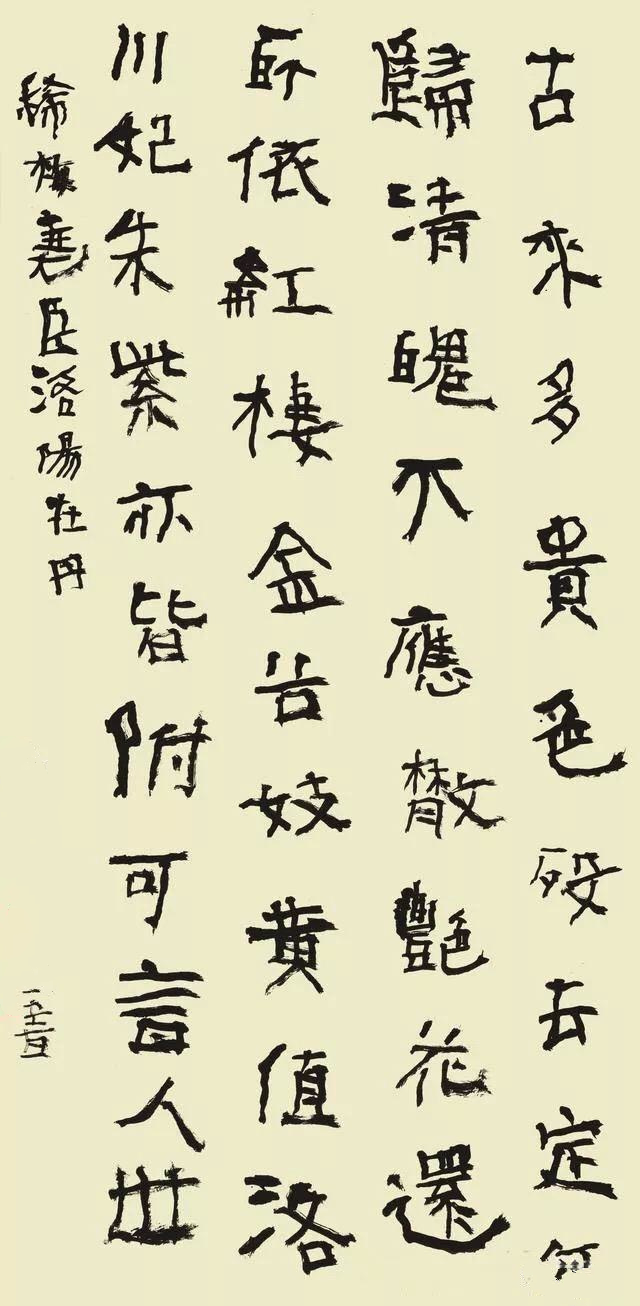 古來多貴色歿去定何
歸清魄不應散艷花還
所依紅棲金谷妓黃值洛
川妃朱紫亦皆附可言人世
稀梅堯臣洛陽牡丹